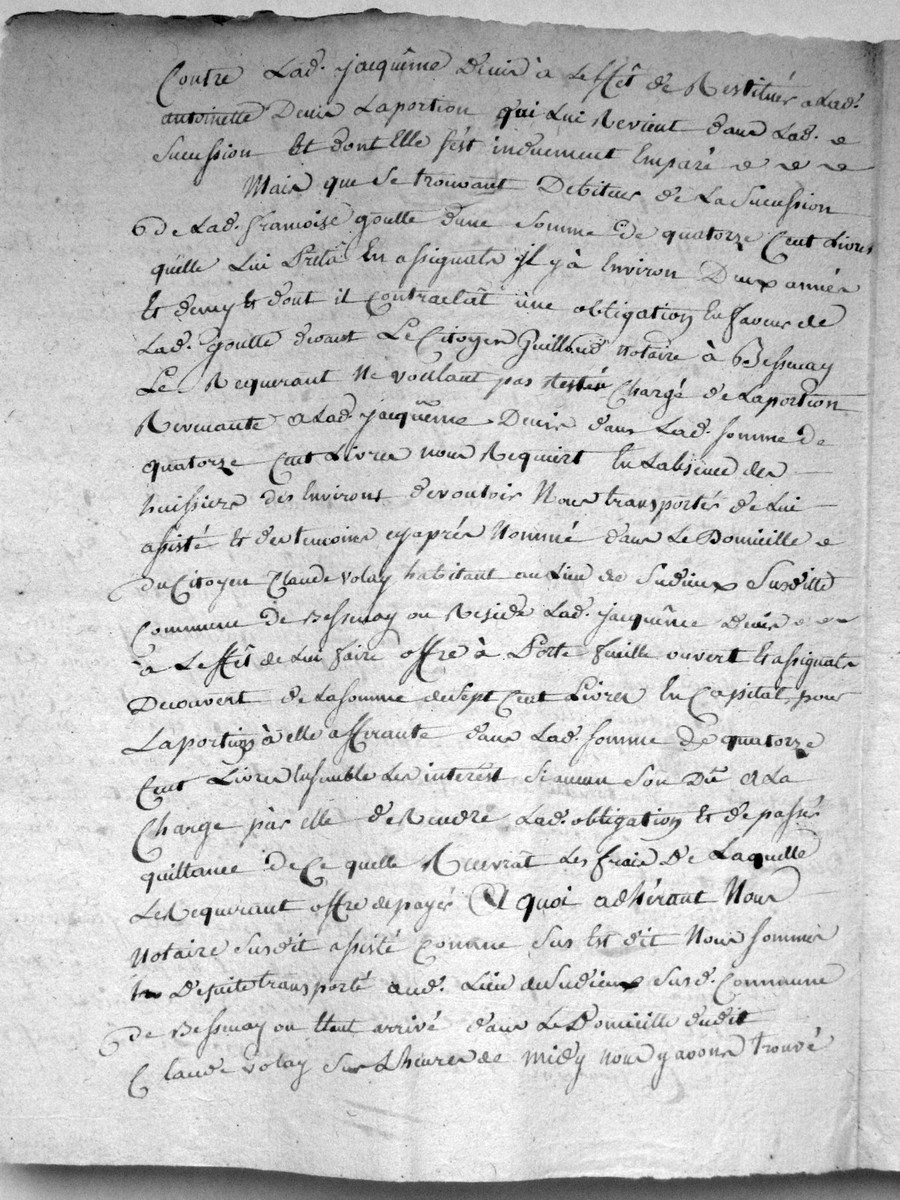 Contre Lad. jacquême Denis à Leffêt de Restituér a Lad.
antoinette Denis Laportion qui Lui Revient dans Lad. e
Sucession Et dont Elle s'est induement Emparé e e e
Mais que Se trouvant Débiteur de La Sucession
de Lad. françoise goutte d'une Somme de quatorze Cent Livres
qu'elle Lui Prêtâ En assignats Il y à Environ Deux années
Et demy Et dont il Contractât une obligation En faveur de
Lad. goutte devant Le Citoyen Guillaud Notaire à Bessenay
Le Requerant Ne voulant pas Resté Chargé de Laportion
Revenante a Lad. jacquême Denis dans Lad. Somme de
quatorze Cent Livres nous Requiert En Labsence des
huissiers des Environs de vouloir Nous transportér de Lui
assisté Et des temoins cy après Nommé dans Le Domicille e
du Citoyen Claude volay habitant au Lieu de Sudieux Susditte
Commune de Bessenay ou Reside Lad. jacquême Denis e e e
à Leffêt de Lui faire offre à Porte feuille ouvert Et assignats
Decouvert de La somme de Sept Cent Livres En Capital, pour
Laportion à elle afferante dans Lad. Somme de quatorze
Cent Livres Ensemble Les interest Si aucun Son Dû a La
Charge par elle de Rendre Lad. obligation Et de passér
quittance de Ce quelle Recevrât Les frais de Laquelle
Le Requerant offre de payér a quoi adhérant Nous
Notaire Susdit assisté Comme Sus Est dit Nous Sommes
De suite transporté aud. Lieu de Sudieux Susd. Commune
de Bessenay ou Etant arrivé dans Le Domicille dudit
Claude volay Sur Lheures de midy nous y avons trouvé